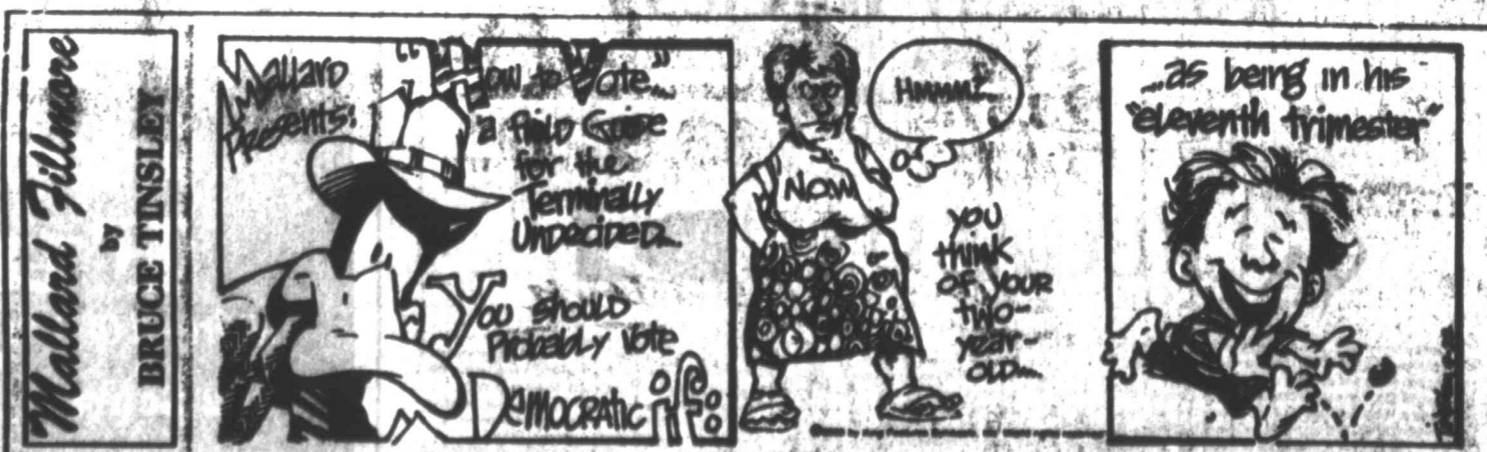 Mallard Fillmore
by
BRUCE TINSLEY
Mallard
Presents:
"How to Vote"...
a Field Guide
for the
Terminally
Undecided...
You should
Probably Vote
Democratic if:
Hmmm?...
NOW
you
think
of your
two-
year-
old...
...as being in his
"eleventh trimester"